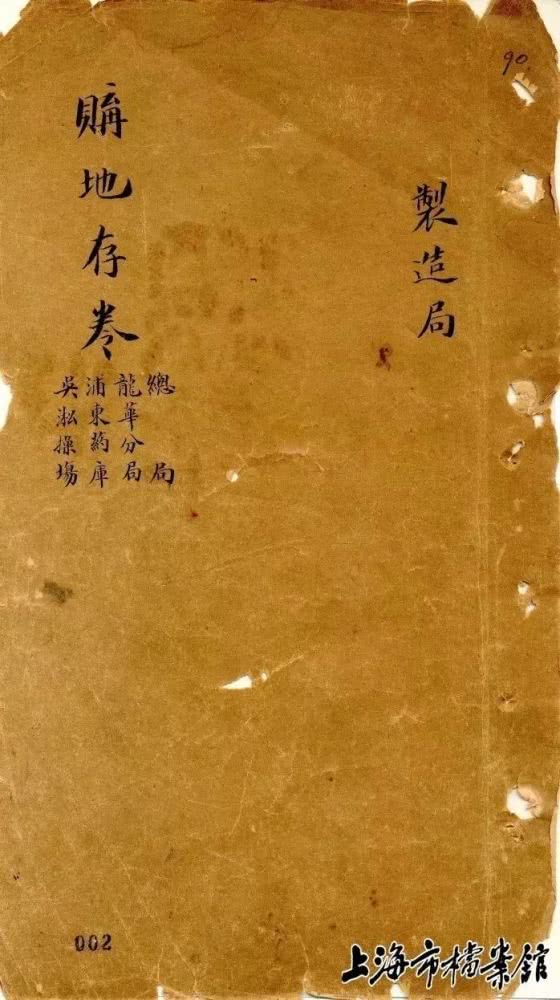 90
製造局
購地存卷
總局
龍華分局
浦東葯庫
吳淞操場
002
上海市檔案館